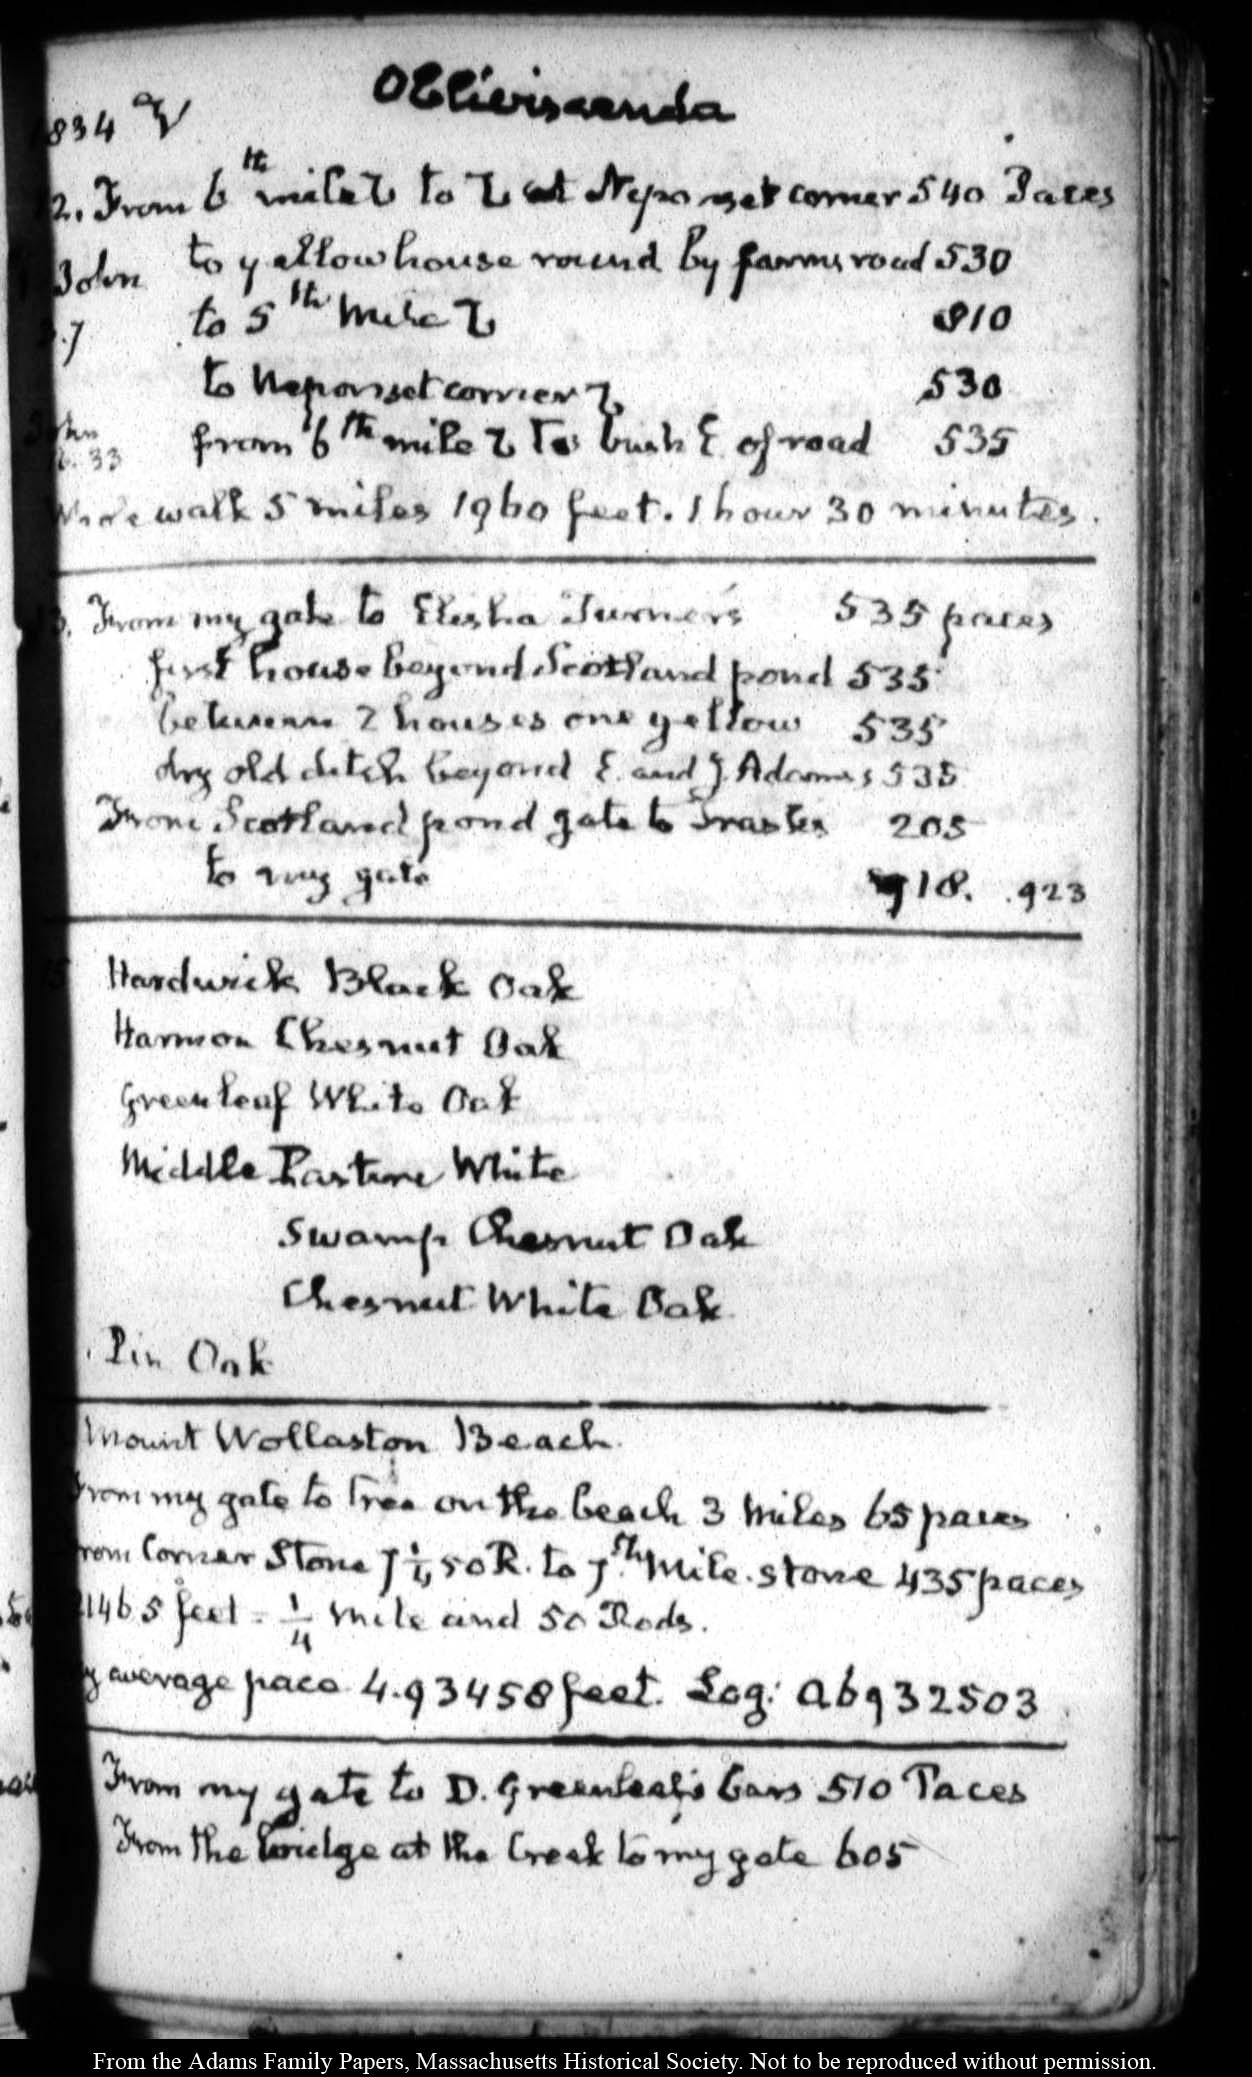 Obliviscenda
1834
12. From 6th mile to at Neponset corner 540 Paces
John to yellow house round by farms road 530
7 to 5th Mile 810
to Neponset corner 530
John 33 from 6th mile to bush E of road 535
walk 5 miles 1960 feet. 1 hour 30 minutes.
13. From my gate to Elisha Turner's 535 paces
first house beyond Scotland pond 535
between 2 houses one yellow 535
dry old ditch beyond E. and J. Adams's 535
From Scotland pond gate to Trasks 205
to my gate 718. .923
15 Hardwick Black Oak
Harmon Chesnut Oak
Greenleaf White Oak
Middle Pasture White
Swamp Chesnut Oak
Chesnut White Oak
Pin Oak
Mount Wollaston Beach.
From my gate to tree on the beach 3 Miles 65 paces
From Corner Stone 7 1/4, 50 R. to 7th Mile stone 435 paces
2146 5 feet = 1/4 Mile and 50 Rods.
My average pace 4.93458 feet. Log: 0.6932503
From my gate to D. Greenleaf's bars 510 Paces
From the bridge at the Creek to my gate 605
From the Adams Family Papers, Massachusetts Historical Society. Not to be reproduced without permission.